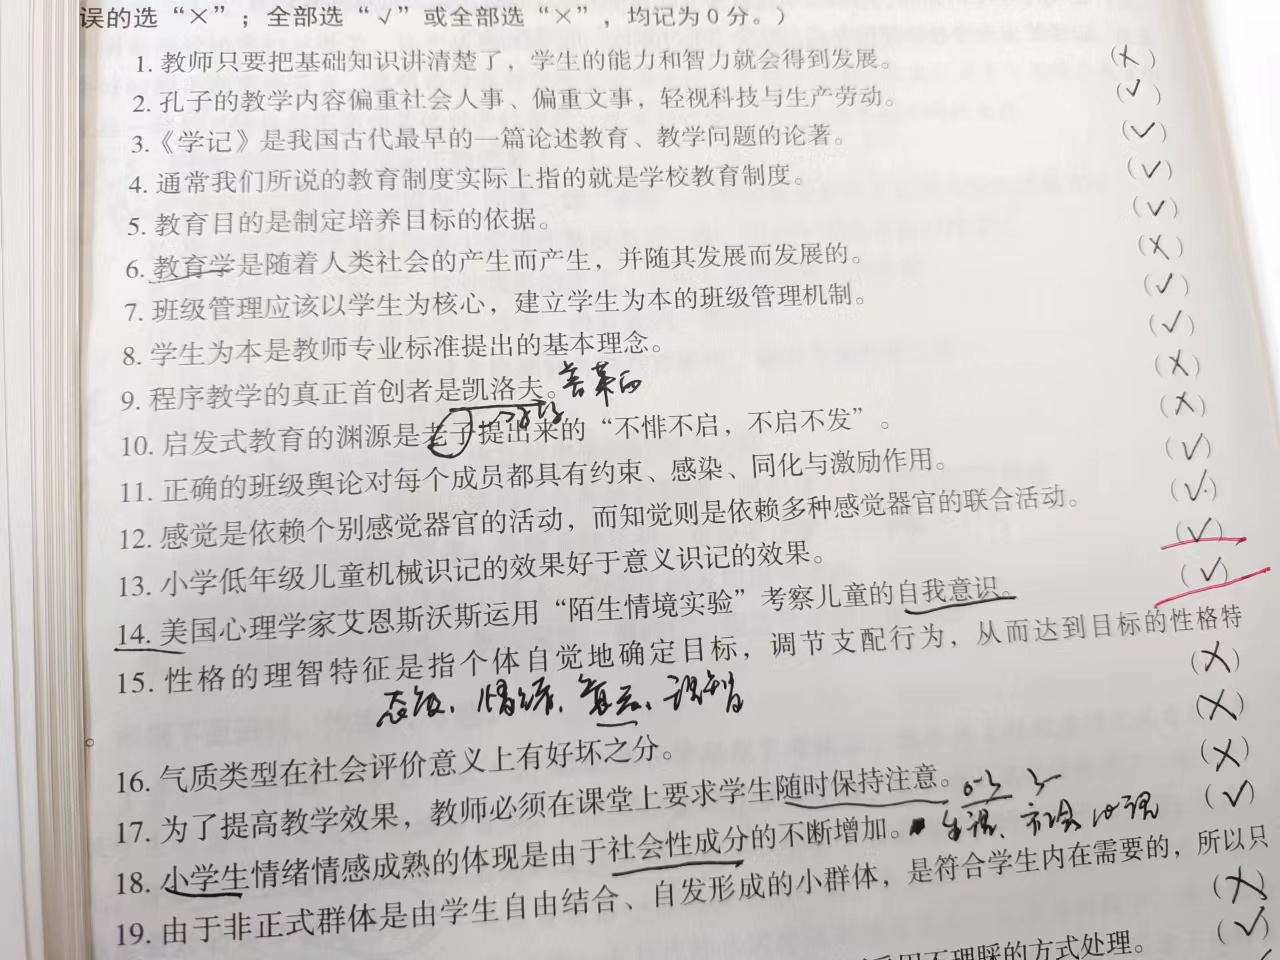 误的选“×”；全部选“√”或全部选“×”，均记为0分。）
1. 教师只要把基础知识讲清楚了，学生的能力和智力就会得到发展。 (×)
2. 孔子的教学内容偏重社会人事、偏重文事，轻视科技与生产劳动。 (√)
3.《学记》是我国古代最早的一篇论述教育、教学问题的论著。 (√)
4. 通常我们所说的教育制度实际上指的就是学校教育制度。 (√)
5. 教育目的是制定培养目标的依据。 (√)
6. 教育学是随着人类社会的产生而产生，并随其发展而发展的。 (×)
7. 班级管理应该以学生为核心，建立学生为本的班级管理机制。 (√)
8. 学生为本是教师专业标准提出的基本理念。 (√)
9. 程序教学的真正首创者是凯洛夫。 (×)
10. 启发式教育的渊源是老子提出来的“不悱不启，不启不发”。 (×)
11. 正确的班级舆论对每个成员都具有约束、感染、同化与激励作用。 (√)
12. 感觉是依赖个别感觉器官的活动，而知觉则是依赖多种感觉器官的联合活动。 (√)
13. 小学低年级儿童机械识记的效果好于意义识记的效果。 (√)
14. 美国心理学家艾恩斯沃斯运用“陌生情境实验”考察儿童的自我意识。 (√)
15. 性格的理智特征是指个体自觉地确定目标，调节支配行为，从而达到目标的性格特
态度、情绪、意志、理智
。 (×)
16. 气质类型在社会评价意义上有好坏之分。 (×)
17. 为了提高教学效果，教师必须在课堂上要求学生随时保持注意。 (×)
18. 小学生情绪情感成熟的体现是由于社会性成分的不断增加。 (√)
19. 由于非正式群体是由学生自由结合、自发形成的小群体，是符合学生内在需要的，所以只
用不理睬的方式处理。 (×)
(√)